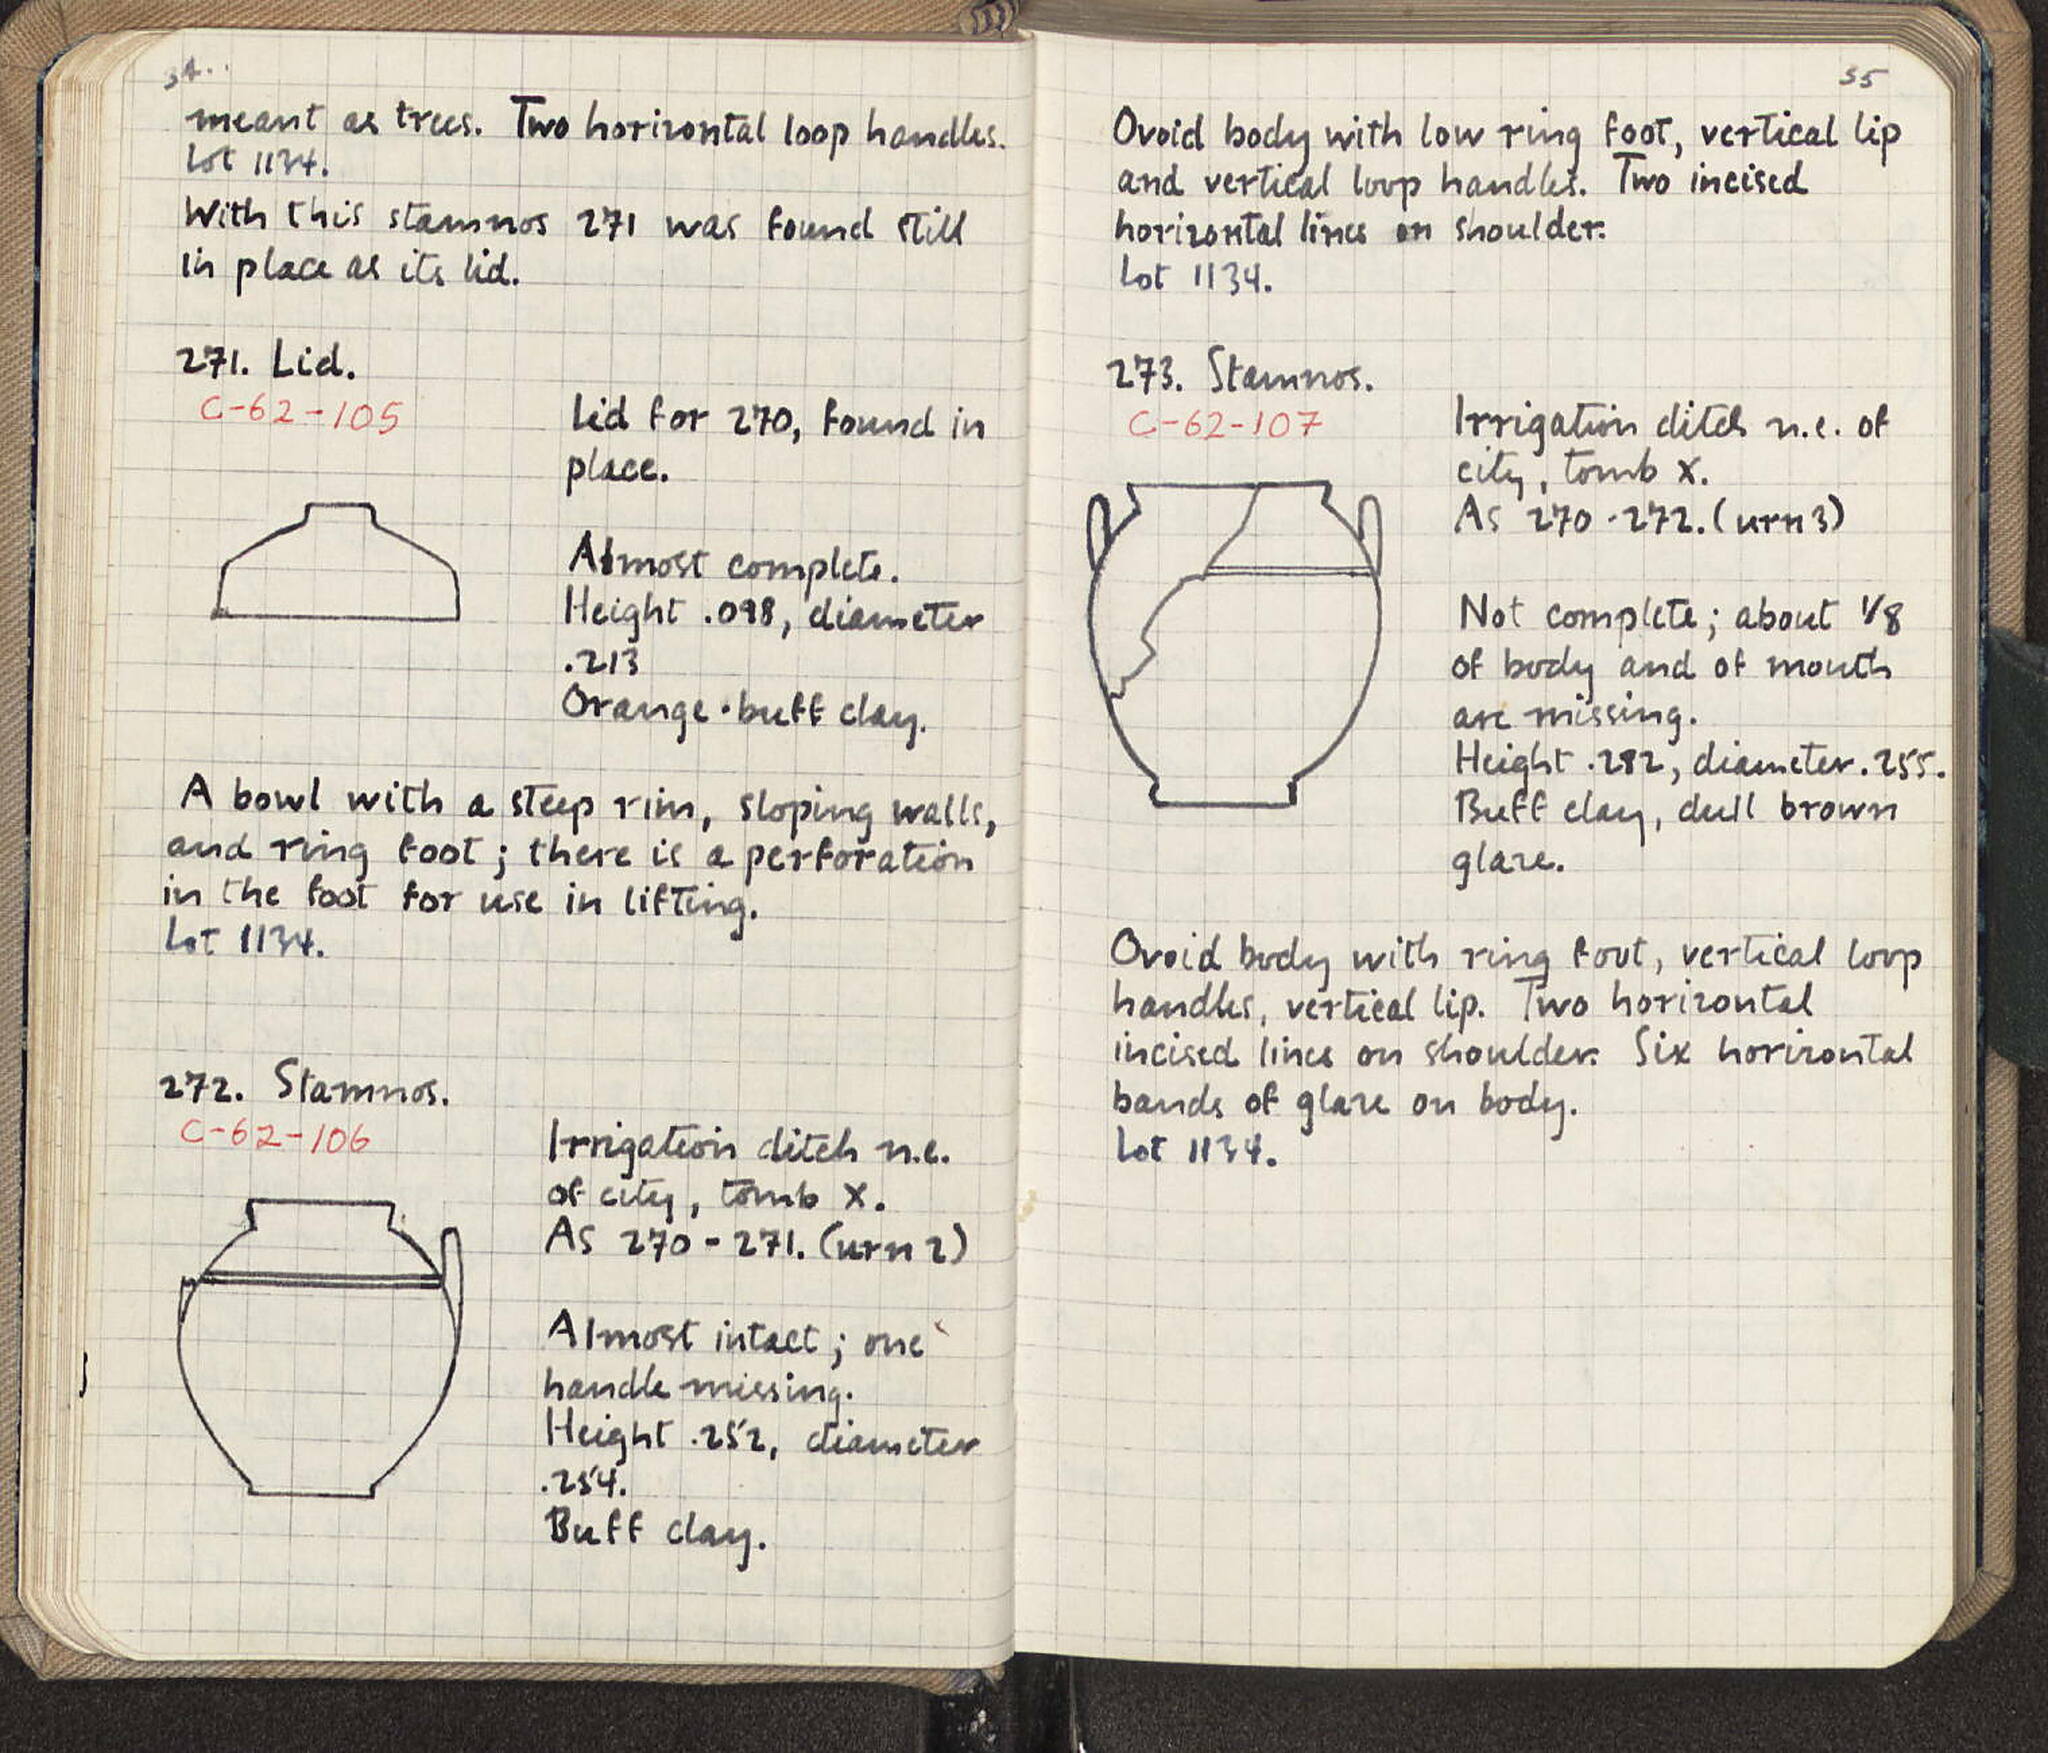 34.
meant as trees. Two horizontal loop handles.
Lot 1134.
With this stamnos 271 was found still
in place as its lid.
271. Lid.
C-62-105
Lid for 270, found in
place.
Almost complete.
Height .098, diameter
.213
Orange-buff clay.
A bowl with a steep rim, sloping walls,
and ring foot; there is a perforation
in the foot for use in lifting.
Lot 1134.
272. Stamnos.
C-62-106
Irrigation ditch n.e.
of city, tomb X.
As 270-271. (urn 2)
Almost intact; one
handle missing.
Height .252, diameter
.254.
Buff clay.
35
Ovoid body with low ring foot, vertical lip
and vertical loop handles. Two incised
horizontal lines on shoulder.
Lot 1134.
273. Stamnos.
C-62-107
Irrigation ditch n.e. of
city, tomb X.
As 270-272. (urn 3)
Not complete; about 1/8
of body and of mouth
are missing.
Height .282, diameter .255.
Buff clay, dull brown
glaze.
Ovoid body with ring foot, vertical loop
handles, vertical lip. Two horizontal
incised lines on shoulder. Six horizontal
bands of glaze on body.
Lot 1134.